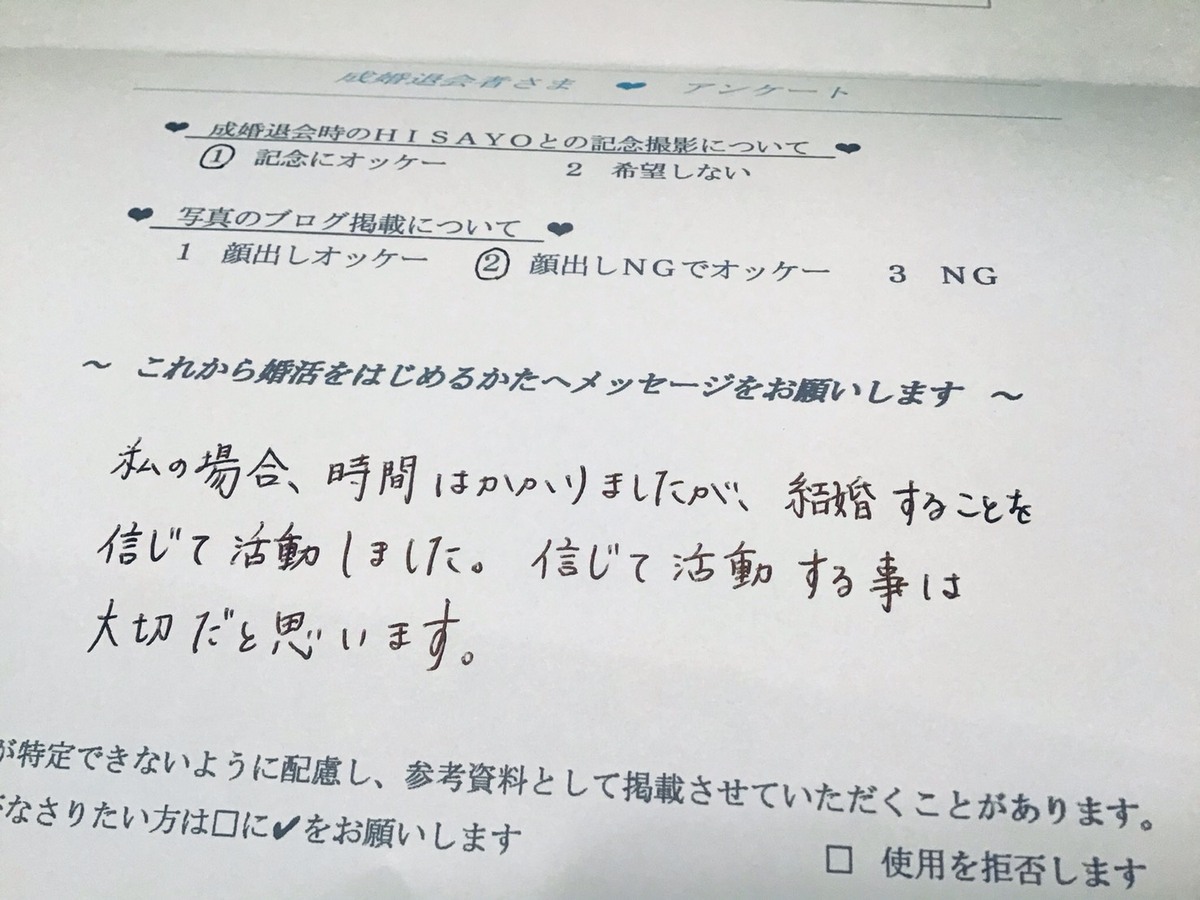 成婚退会者さま ❤ アンケート
❤ 成婚退会時のHISAYOとの記念撮影について ❤
① 記念にオッケー 2 希望しない
❤ 写真のブログ掲載について ❤
1 顔出しオッケー ② 顔出しNGでオッケー 3 NG
~ これから婚活をはじめるかたへメッセージをお願いします ~
私の場合、時間はかかりましたが、結婚することを
信じて活動しました。信じて活動する事は
大切だと思います。
が特定できないように配慮し、参考資料として掲載させていただくことがあります。
なさりたい方は□に✔をお願いします
□ 使用を拒否します